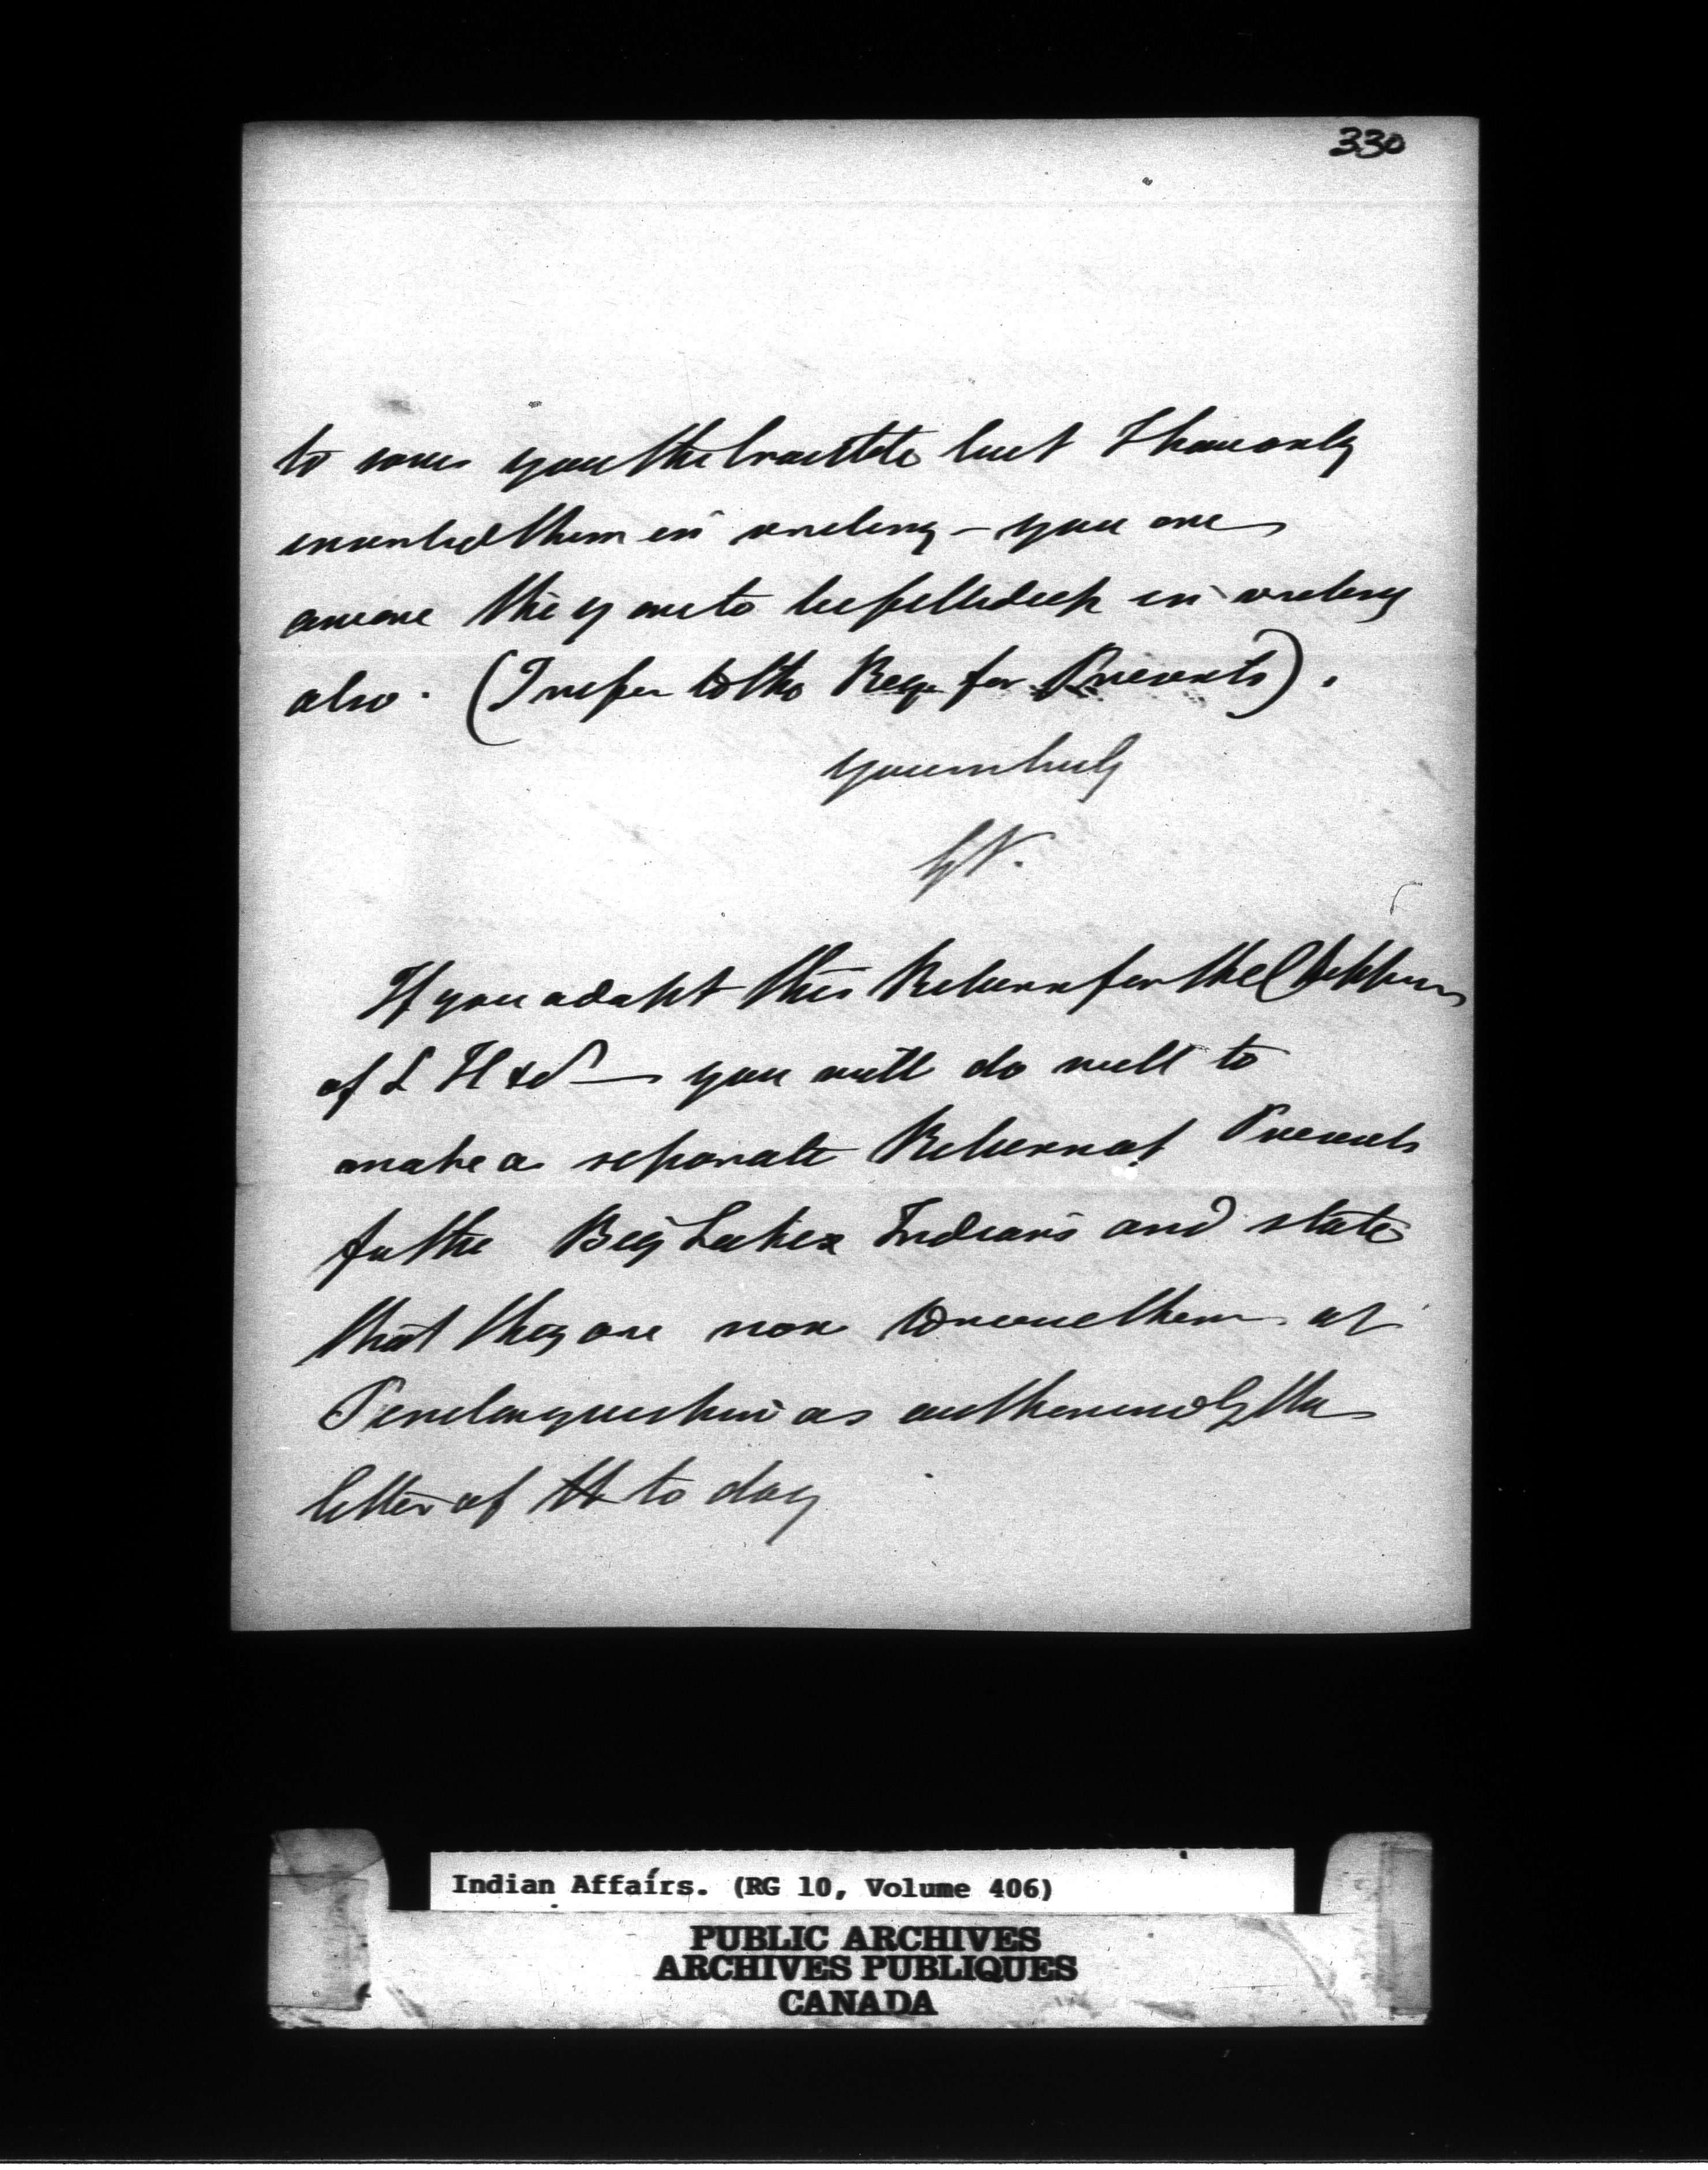 330
to save you the trouble but I have only
inserted them in writing – you are
aware they are to be filled up in writing
also. (I refer to the Reqn for Presents).
yours truly
GV.
If you adopt this Return for the Chippewas
of L H & S — you will do well to
make a separate Return of Presents
for the Indians and state
that they are now to receive them at
Penetanguishine as authorised by the
letter of to day
Indian Affairs. (RG 10, Volume 406)
PUBLIC ARCHIVES
ARCHIVES PUBLIQUES
CANADA